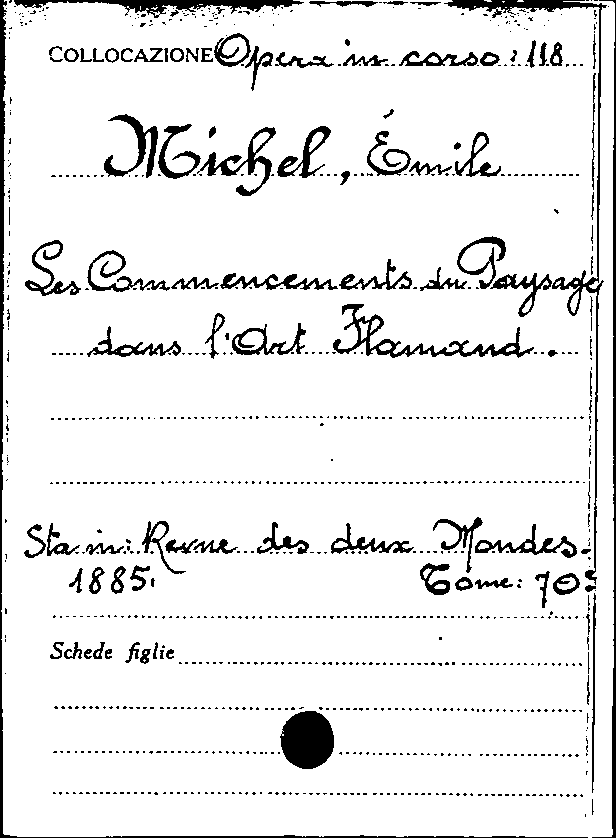 COLLOCAZIONE Opera in corso: 118
Michel, Émile
Les Commencements du Paysage
dans l'Art Flamand.
Sta in: Revue des deux Mondes.
1885. Tôme: 70:
Schede figlie